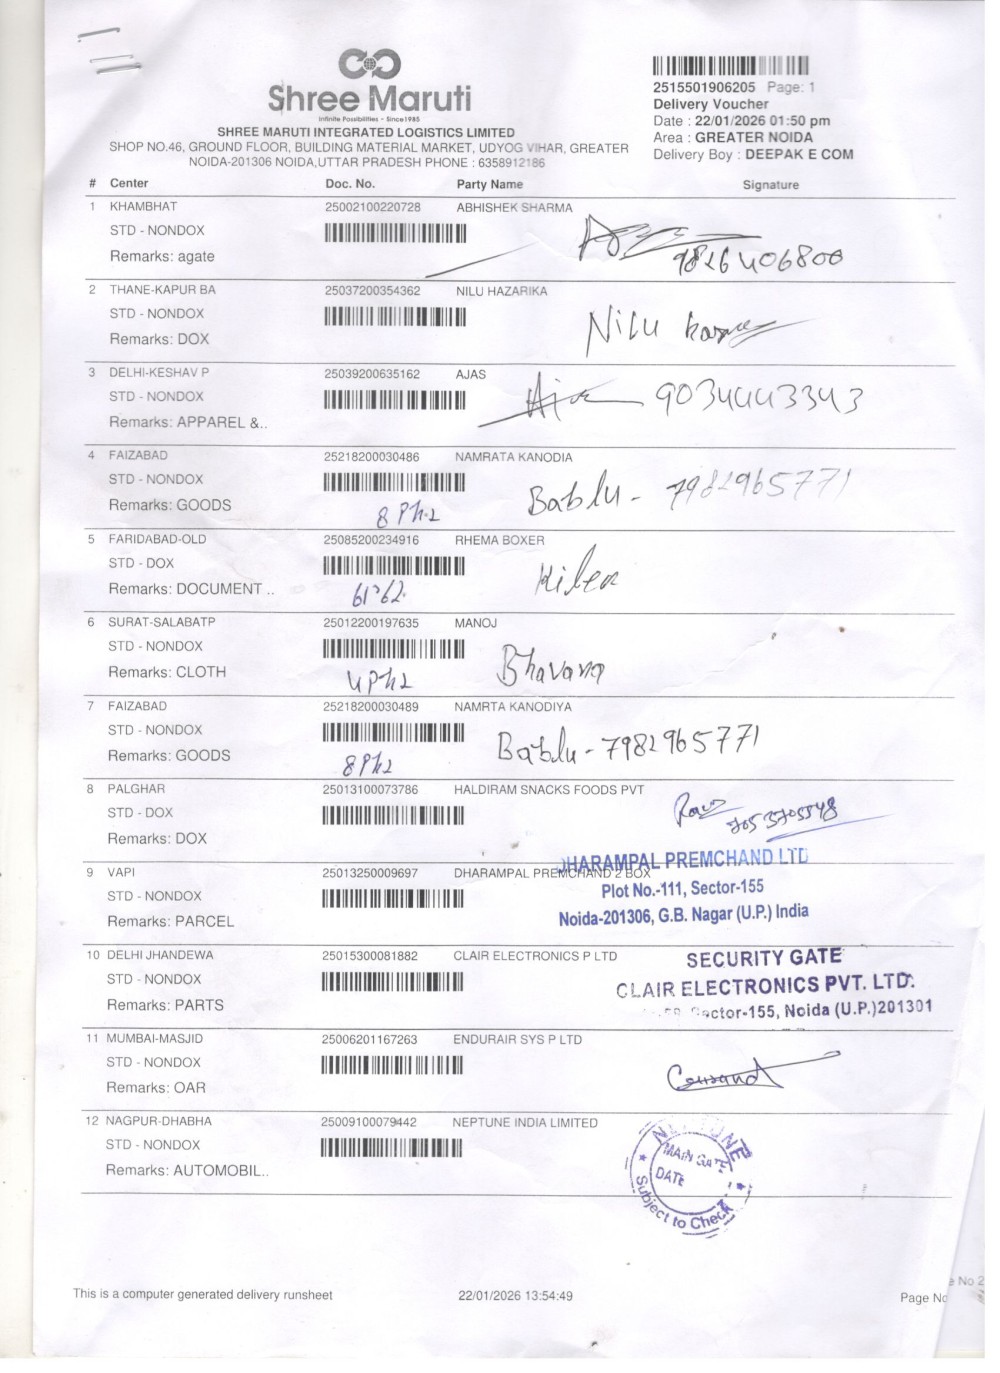 Shree Maruti
Infinite Possibilities - Since 1985
SHREE MARUTI INTEGRATED LOGISTICS LIMITED
SHOP NO.46, GROUND FLOOR, BUILDING MATERIAL MARKET, UDYOG VIHAR, GREATER
NOIDA-201306 NOIDA,UTTAR PRADESH PHONE : 6358912186
2515501906205 Page: 1
Delivery Voucher
Date : 22/01/2026 01:50 pm
Area : GREATER NOIDA
Delivery Boy : DEEPAK E COM
# Center Doc. No. Party Name Signature
1 KHAMBHAT 25002100220728 ABHISHEK SHARMA
STD - NONDOX
Remarks: agate 9826406800
2 THANE-KAPUR BA 25037200354362 NILU HAZARIKA
STD - NONDOX Nilu
Remarks: DOX
3 DELHI-KESHAV P 25039200635162 AJAS
STD - NONDOX 9034443343
Remarks: APPAREL &..
4 FAIZABAD 25218200030486 NAMRATA KANODIA
STD - NONDOX Bablu - 7982965771
Remarks: GOODS
5 FARIDABAD-OLD 25085200234916 RHEMA BOXER
STD - DOX
Remarks: DOCUMENT ..
6 SURAT-SALABATP 25012200197635 MANOJ
STD - NONDOX Bhavana
Remarks: CLOTH
7 FAIZABAD 25218200030489 NAMRTA KANODIYA
STD - NONDOX Bablu - 7982965771
Remarks: GOODS
8 PALGHAR 25013100073786 HALDIRAM SNACKS FOODS PVT
STD - DOX
Remarks: DOX
DHARAMPAL PREMCHAND LTD
9 VAPI 25013250009697 DHARAMPAL PREMCHAND 2 BOX
STD - NONDOX Plot No.-111, Sector-155
Remarks: PARCEL Noida-201306, G.B. Nagar (U.P.) India
10 DELHI JHANDEWA 25015300081882 CLAIR ELECTRONICS P LTD SECURITY GATE
STD - NONDOX CLAIR ELECTRONICS PVT. LTD.
Remarks: PARTS Sector-155, Noida (U.P.)201301
11 MUMBAI-MASJID 25006201167263 ENDURAIR SYS P LTD
STD - NONDOX
Remarks: OAR
12 NAGPUR-DHABHA 25009100079442 NEPTUNE INDIA LIMITED
STD - NONDOX NEPTUNE MAIN GATE
Remarks: AUTOMOBIL.. DATE
Subject to Check
This is a computer generated delivery runsheet 22/01/2026 13:54:49 Page No
e No 2